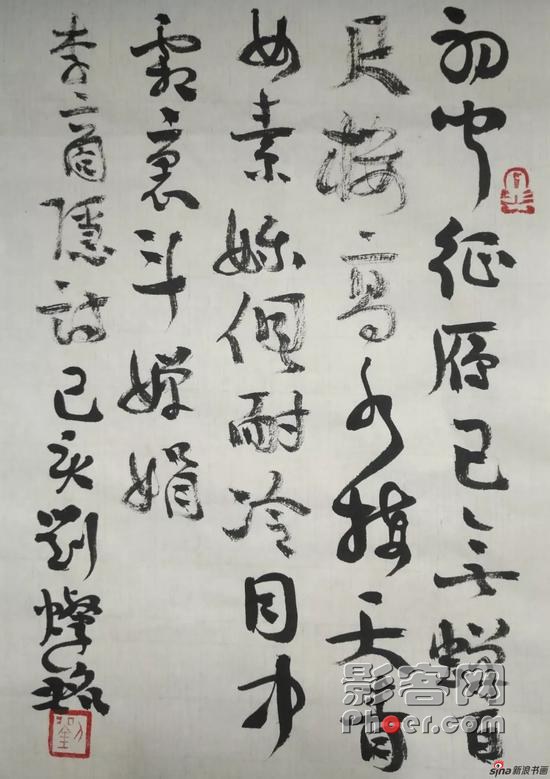 初聞征鴈已无蟬百
尺樓高水接天青
女素娥俱耐冷月中
霜裏斗嬋娟
李商隱詩己亥劉燦銘
影客网
Phoer.com
sina新浪书画